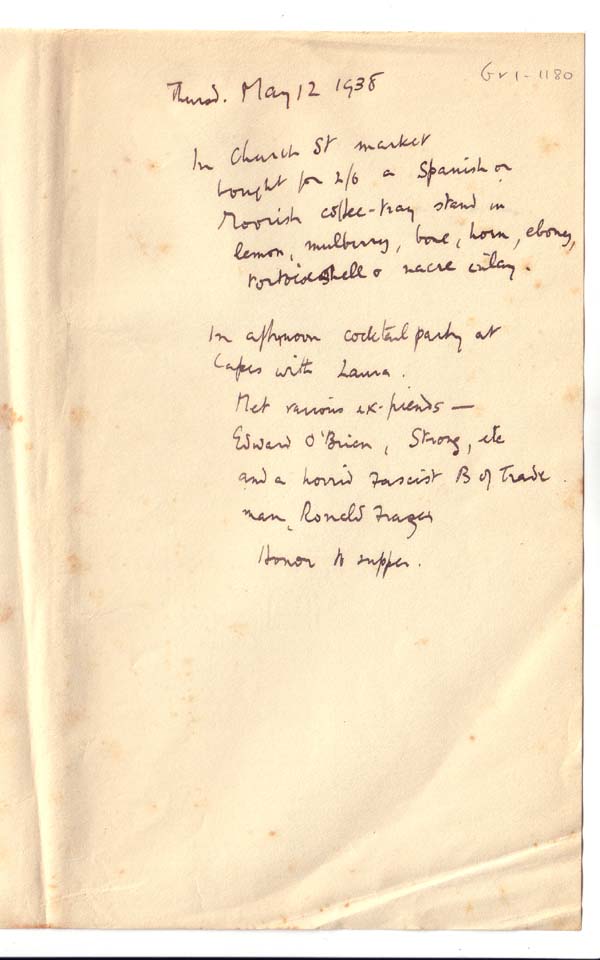 Gr 1-1180
Thursd. May 12 1938
In Church St market
bought for 2/6 a Spanish or
Moorish coffee-tray stand in
lemon, mulberry, bone, horn, ebony,
tortoiseshell & nacre inlay.
In afternoon cocktail party at
Capes with Laura.
Met various ex-friends —
Edward O'Brien, Strong, etc
and a horrid Fascist B of Trade
man, Ronald Frazer
Honor to supper.